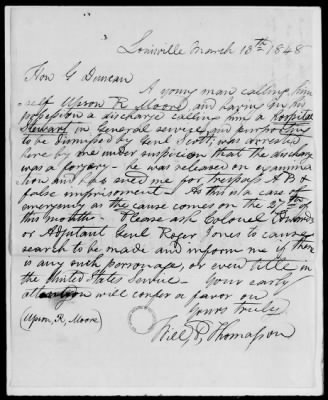 Louisville March 13th 1848
Hon G Duncan
A young man calling him
self Upson R Moore and having in his
possession a discharge calling him a Hospital
Steward in General service and purporting
to be signed by Genl Scott, was arrested
here by me under suspicion that the discharge
was a forgery. he was released on examina
tion and has sued me for trespass A. B. &
false imprisonment - As this is a case of
emergency as the cause comes on the 27th of
this month - Please ask Colonel
or Adjutant Genl Roger Jones to cause
search to be made and inform me if there
is any such personage, or even title in
the United States Service - Your early
attention will confer a favor on
Yours truly
Will. P. Thomasson
(Upson, R, Moore)